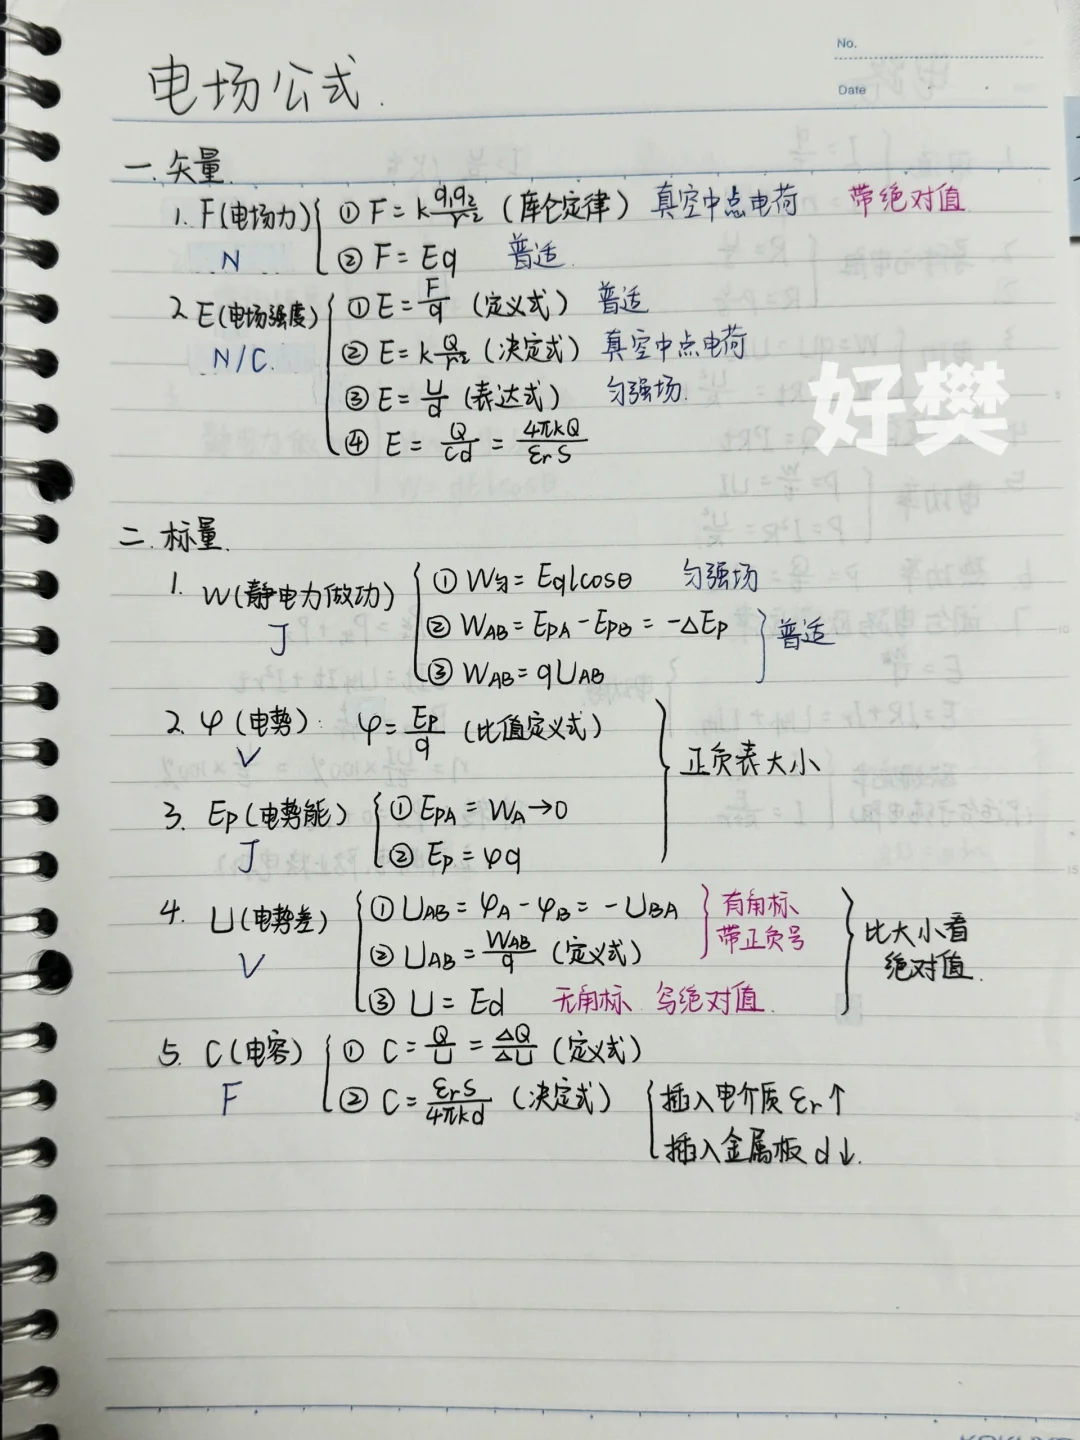 No.
Date
电场公式.
一.矢量.
1. F(电场力) ① F=k q₁q₂/r² (库仑定律) 真空中点电荷 带绝对值
N ② F=Eq 普适.
2. E(电场强度) ① E=F/q (定义式) 普适
N/C. ② E=k Q/r² (决定式) 真空中点电荷
③ E=U/d (表达式) 匀强场.
④ E=Q/Cd=4πkQ/εrS
好樊
二.标量.
1. W(静电力做功) ① W匀=Eqlcosθ 匀强场
J ② WAB=EPA-EPB=-ΔEP 普适
③ WAB=qUAB
2. φ(电势): φ=EP/q (比值定义式)
V 正负表大小
3. EP(电势能) ① EPA=WA→0
J ② EP=φq
4. U(电势差) ① UAB=φA-φB=-UBA 有角标 带正负号
V ② UAB=WAB/q (定义式) 比大小看绝对值.
③ U=Ed 无角标.写绝对值.
5. C(电容) ① C=Q/U=ΔQ/ΔU (定义式)
F ② C=εrS/4πkd (决定式) 插入电介质εr↑
插入金属板d↓.